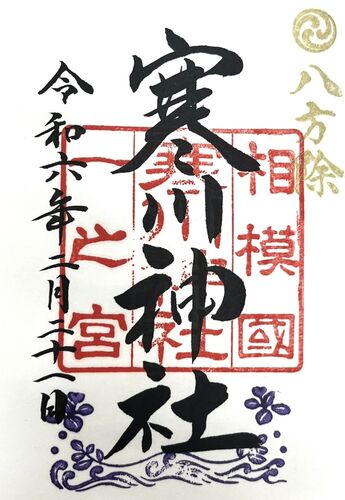 八方除
相模國
寒川神社
一之宮
寒川神社
令和六年二月二十一日